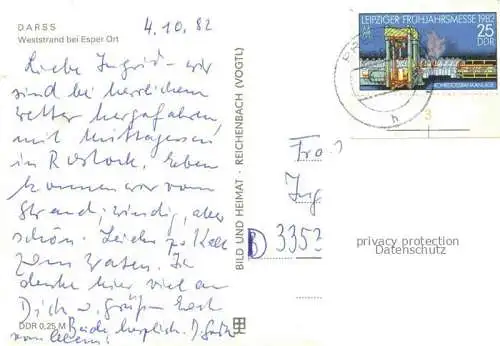 DARSS
Weststrand bei Esper Ort
4.10.82
Liebe Ingrid - wir
sind bei herrlichem
Wetter hergefahren,
mit Mittagessen
in Rostock. Eben
kommen wir vom
Strand; windig, aber
schön. Leider zu kalt
zum Baden. Ich
denke hier viel an
Dich u. grüßen Euch
Beide herzlich.
DDR 0,25 M
BILD UND HEIMAT · REICHENBACH (VOGTL)
LEIPZIGER FRÜHJAHRSMESSE 1982
25
DDR
3
h
Ing
D 3353
privacy protection
Datenschutz